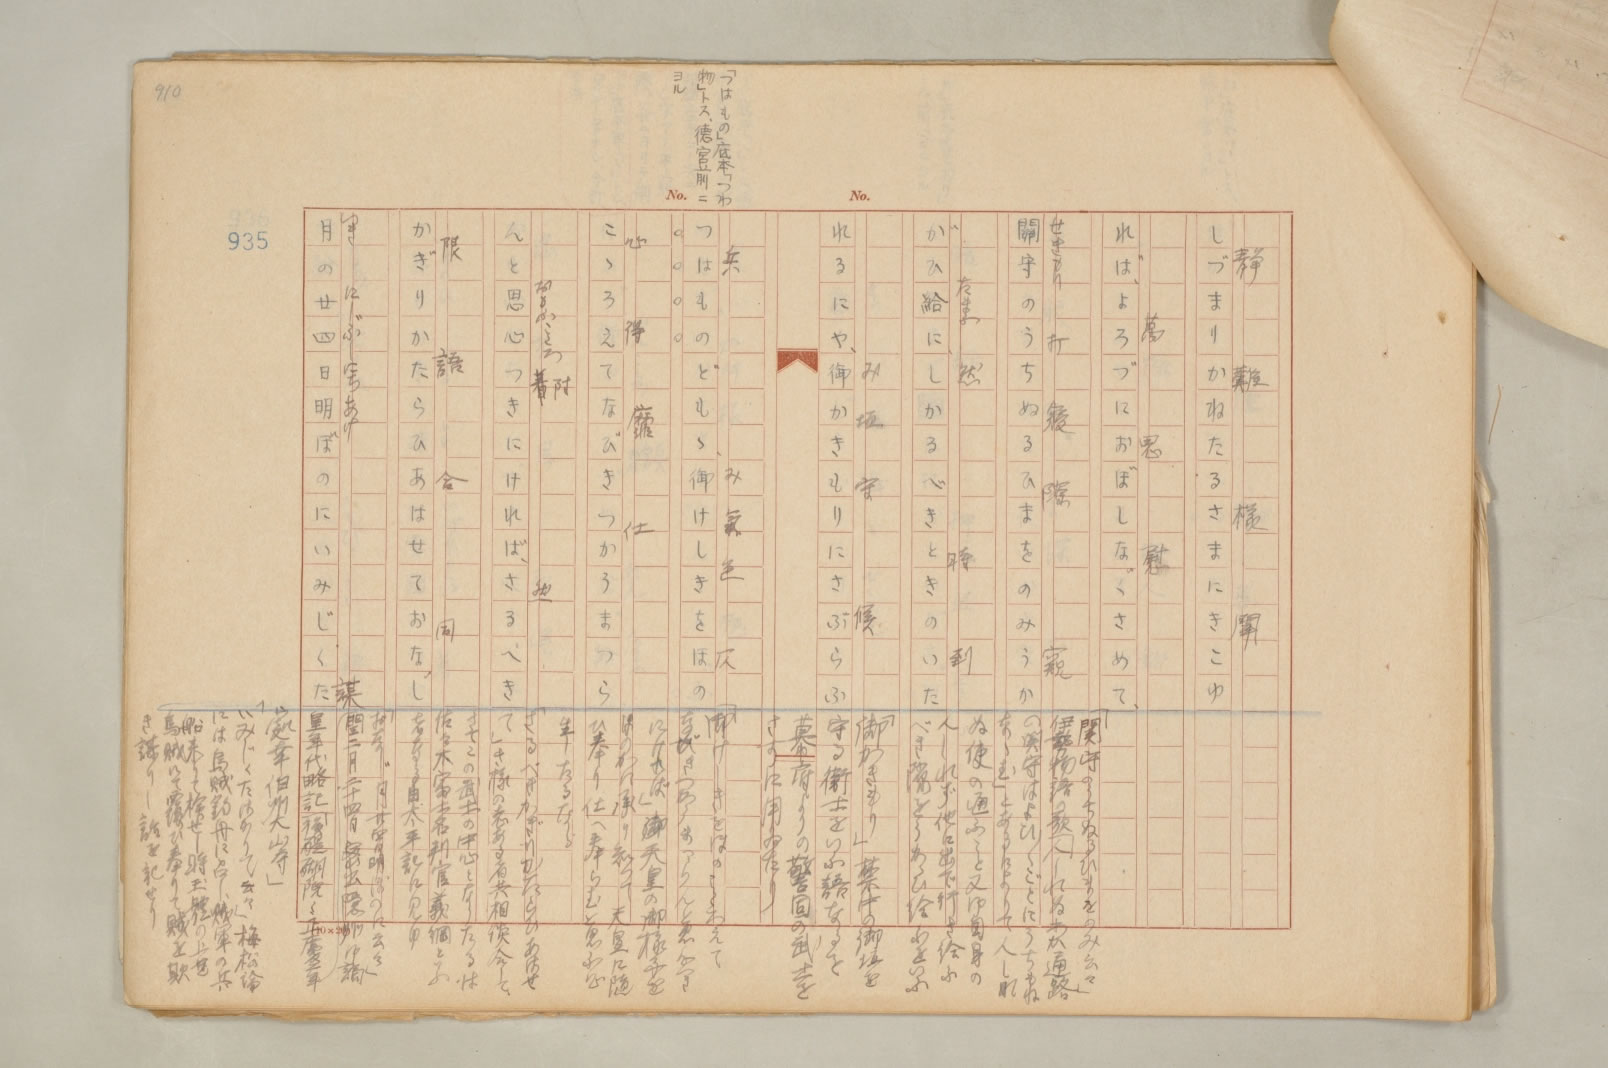 910
935
「つはもの」底本「つわ
物」トス、德宮一別ニ
ヨル
No.
No.
しづまりかねたるさまにきこゆ
靜 難 樣 聞
れば、よろづにおぼしなぐさめて、
萬 思 慰
關守のうちぬるひまをのみうか
せきもり 打 寢 隙 窺
がひ給に、しかるべきときのいた
たまふ 然 時 到
れるにや、御かきもりにさぶらふ
み 垣 守 候
つはものども、御けしきをほの
兵 み 氣色 仄
こゝろえてなびきつかうまつら
心 得 靡 仕
んと思心つきにければ、さるべき
おもふこゝろ 著 附 然
かぎりかたらひあはせておなじ
限 語 合 同
月の廿四日明ぼのにいみじくた
にじふし あけ 謀
「關守のうちぬるひまをのみ云々」
伊勢物語の歌「人しれぬわが通路
の關守はよひ〳〵ごとにうちもね
ななむ」とあるによりて、人しれ
ぬ使の通ふこと又は御自身の
人しれず他に出で行き給ふ
べき隙をうかゞひ給ふをいふ
「御かきもり」禁中の御垣を
守る衞士をいふ語なるを
幕府よりの警固の武士を
さすに用ゐたり
「御けしきをほのこゝろえて
なびきつかうまつらんと思心つき
にければ」御天皇の御樣子を
ほのかに承り知つて天皇に隨
ひ奉り仕へ奉らむと思ふ心
生じたるなり
「さるべきかぎりかたらひあはせ
て」さ樣の志ある者共相談合して、
さてこの武士の中心となりたるは
佐々木富士名判官義綱といふ
者なる由太平記に見ゆ
「おなじ月廿四日明ぼのに云々」
閏二月二十四日
皇年代略記「後醍醐院〻正慶二年
「いみじくたばかりて云々」梅松論
には烏賊釣舟に 賊軍の兵
船來りて
烏賊にて覆ひ奉りて賊を欺
き謀りし話を記せり
10×20